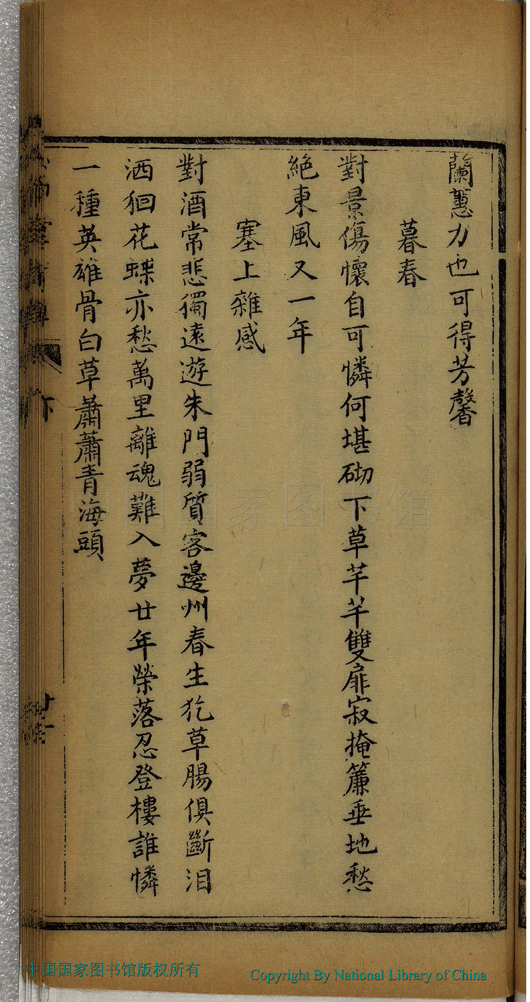 蘭蕙力也可得芳馨
暮春
對景傷懷自可憐何堪砌下草芊芊雙扉寂掩簾垂地愁
絶東風又一年
塞上雜感
對酒常悲獨遠遊朱門弱質客邊州春生花草腸俱斷淚
洒徊花蝶亦愁萬里離魂難入夢廿年榮落忍登樓誰憐
一種英雄骨白草蕭蕭青海頭
下
中国国家图书馆版权所有
Copyright By National Library of China